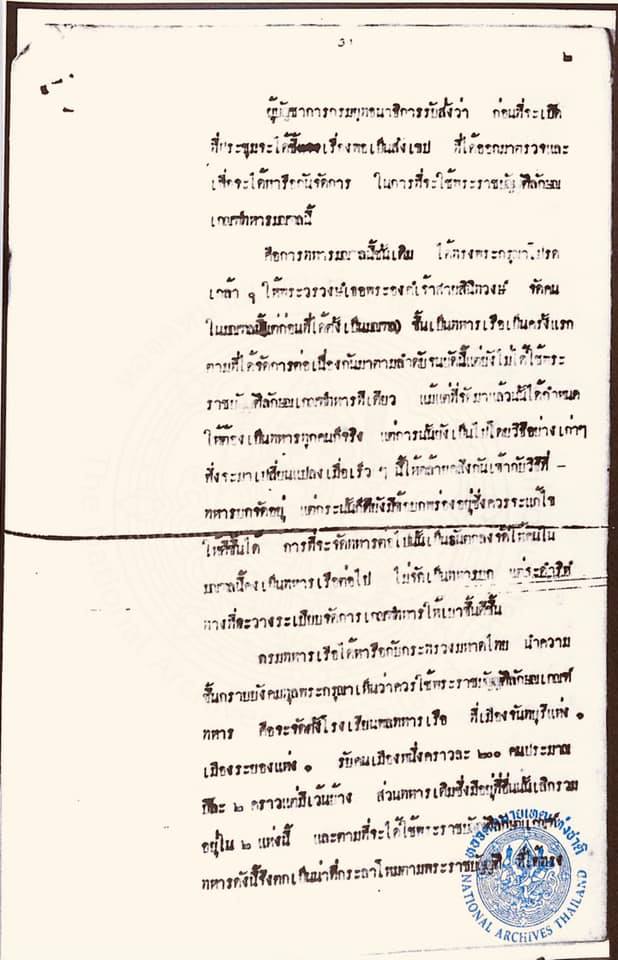 ๒
ผู้บัญชาการกรมยุทธนาธิการรับสั่งว่า ก่อนที่จะเปิด
ที่ประชุมจะได้ชี้ เรื่องพอเป็นสังเขป ที่ได้ออกมาตรวจและ
เพื่อจะได้หารือกันจัดการ ในการที่จะใช้พระราชบัญญัติลักษณ
เกณฑ์ทหารมณฑลนี้
คือการทหารมณฑลนี้ชั้นเดิม ได้ทรงพระกรุณาโปรด
เกล้า ๆ ให้พระวรวงษ์เธอพระองค์เจ้าสายสนิทวงษ์ จัดคน
ในมณฑลนี้(แต่ก่อนที่ได้ตั้งเป็นมณฑล) ขึ้นเป็นทหารเรือเป็นครั้งแรก
ตามที่ได้จัดการต่อเนื่องกันมาตามลำดับจนบัดนี้แต่ยังไม่ได้ใช้พระ
ราชบัญญัติลักษณเกณฑ์ทหารทีเดียว แม้แต่ที่จัดมาแล้วนั้นได้กำหนด
ให้ต้องเป็นทหารทุกคนก็จริง แต่การนั้นยังเป็นไปโดยวิธีอย่างเก่าๆ
พึ่งจะมาเปลี่ยนแปลงเมื่อเร็ว ๆ นี้ให้คล้ายคลึงกันเข้ากับวิธีที่ -
ทหารบกจัดอยู่ แต่กระนั้นก็ดียังมีข้อบกพร่องอยู่ซึ่งควรจะแก้ไข
ให้ดีขึ้นได้ การที่จะจัดทหารต่อไปนั้นเป็นอันตกลงจัดให้คนใน
มณฑลนี้คงเป็นทหารเรือต่อไป ไม่จัดเป็นทหารบก แต่จะดำริห์
ทางที่จะวางระเบียบจัดการเกณฑ์ทหารให้เบาขึ้นดีขึ้น
กรมทหารเรือได้หารือกับกระทรวงมหาดไทย นำความ
ขึ้นกราบบังคมทูลพระกรุณาเป็นว่าควรใช้พระราชบัญญัติลักษณเกณฑ์
ทหาร คือจะจัดตั้งโรงเรียนพลทหารเรือ ที่เมืองจันทบุรีแห่ง ๑
เมืองระยองแห่ง ๑ รับคนเมืองหนึ่งคราวละ ๒๐๐ คนประมาณ
ปีละ ๒ คราวแต่มีเว้นบ้าง ส่วนทหารเดิมซึ่งมีอยู่ที่อื่นนั้นเลิกรวม
อยู่ใน ๒ แห่งนี้ และตามที่จะได้ใช้พระราชบัญญัติลักษณเกณฑ์
ทหารดังนี้จึงตกเป็นน่าที่กระลาโหมตามพระราชบัญญัติ ที่ได้ทรง
หอจดหมายเหตุแห่งชาติ
NATIONAL ARCHIVES THAILAND